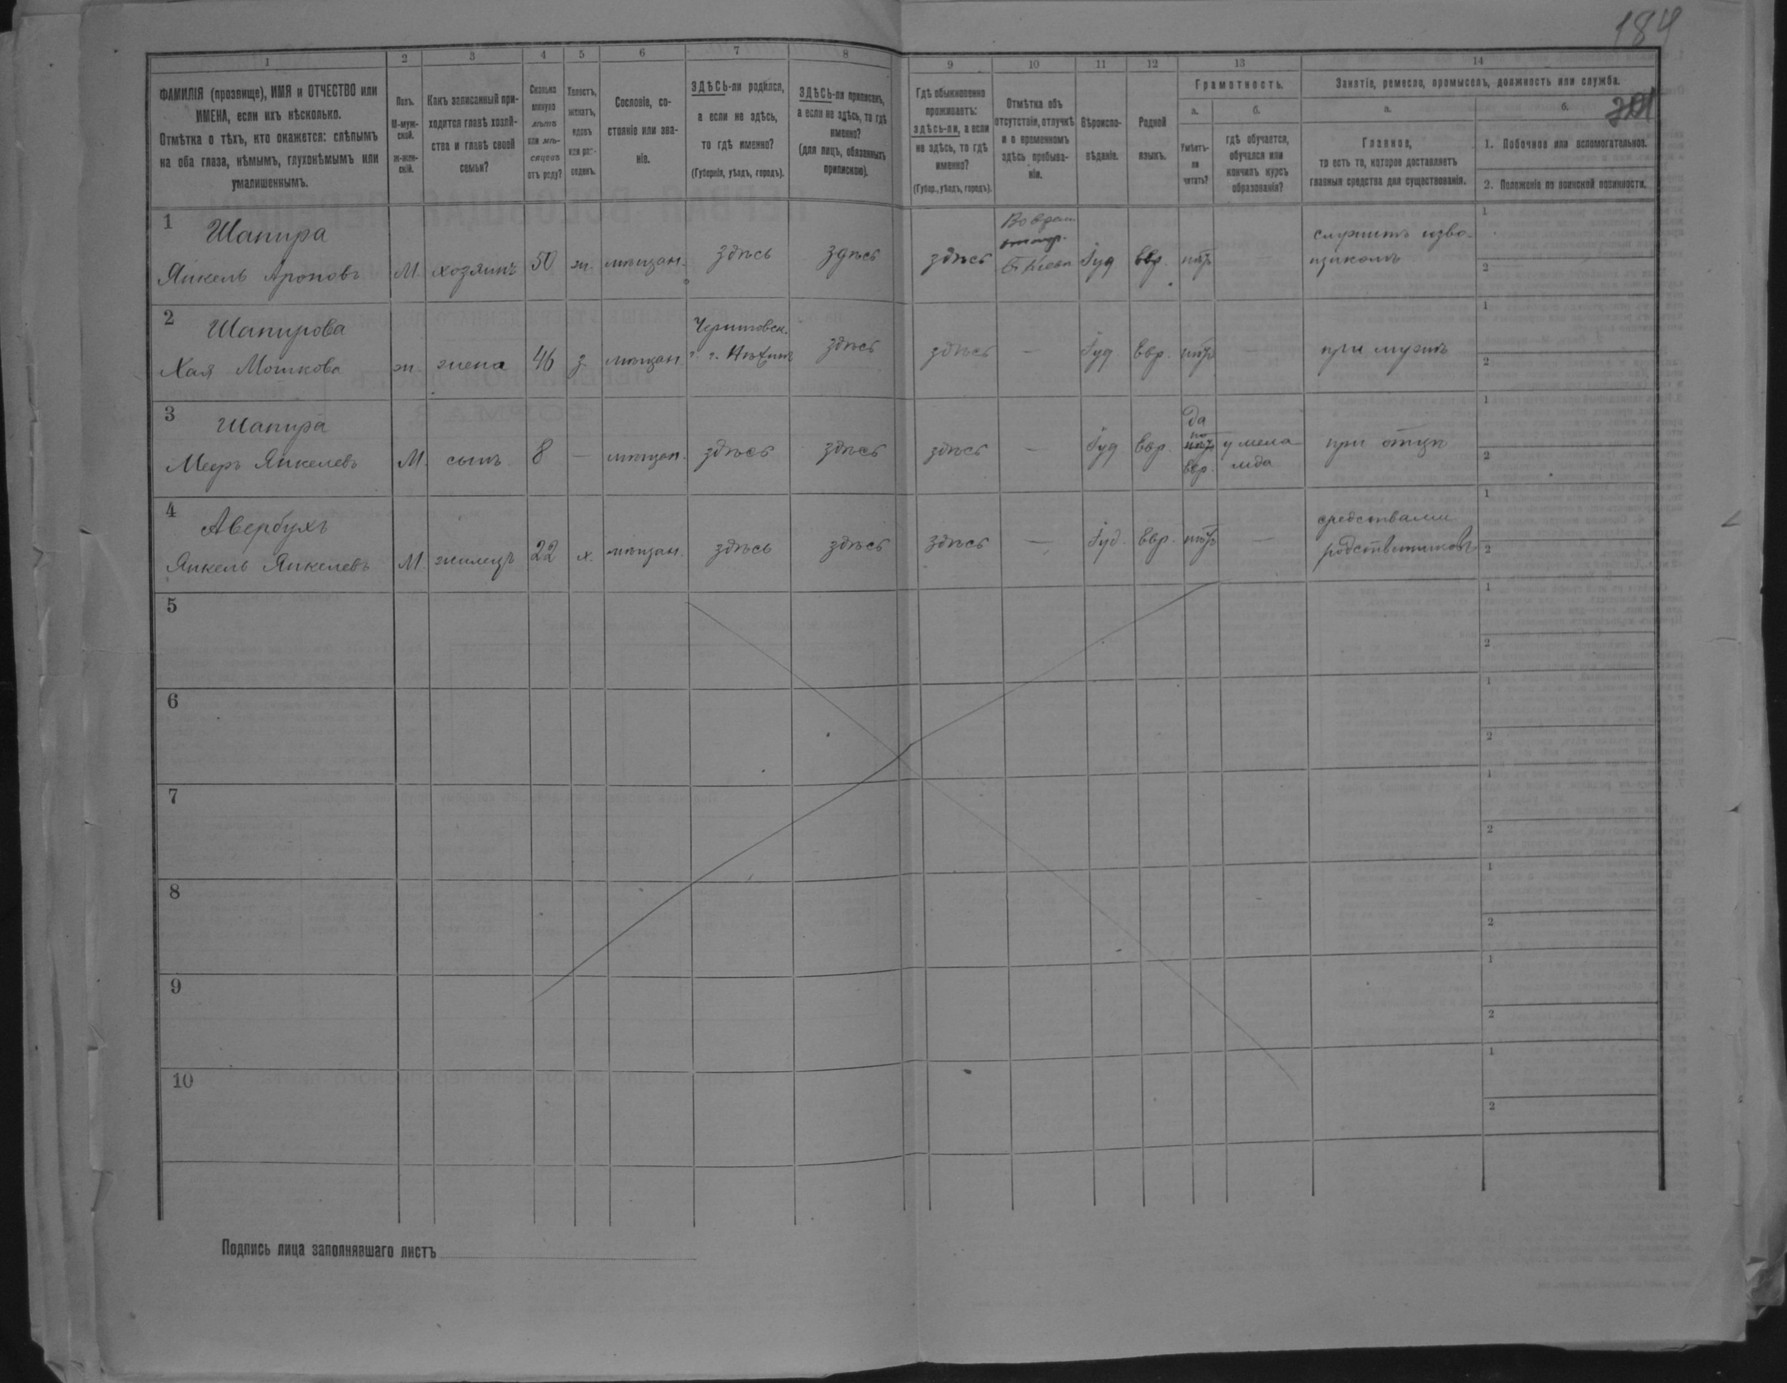 184
201
1 2 3 4 5 6 7 8 9 10 11 12 13 14
ФАМИЛІЯ (прозвище), ИМЯ и ОТЧЕСТВО или
ИМЕНА, если ихъ нѣсколько.
Отмѣтка о тѣхъ, кто окажется: слѣпымъ
на оба глаза, нѣмымъ, глухонѣмымъ или
умалишеннымъ.
Полъ.
М-муж-
ской.
Ж-жен-
скій.
Какъ записанный при-
ходится главѣ хозяй-
ства и главѣ своей
семьи?
Сколько
минуло
лѣтъ
или мѣ-
сяцевъ
отъ роду?
Холостъ,
женатъ,
вдовъ
или раз-
веденъ.
Сословіе, со-
стояніе или зва-
ніе.
ЗДѢСЬ-ли родился,
а если не здѣсь,
то гдѣ именно?
(Губернія, уѣздъ, городъ).
ЗДѢСЬ-ли приписанъ,
а если не здѣсь, то гдѣ
именно?
(для лицъ, обязанныхъ
припискою).
Гдѣ обыкновенно
проживаетъ:
здѣсь-ли, а если
не здѣсь, то гдѣ
именно?
(Губер., уѣздъ, городъ).
Отмѣтка объ
отсутствіи, отлучкѣ
и о временномъ
здѣсь пребыва-
ніи.
Вѣроиспо-
вѣданіе.
Родной
языкъ.
Грамотность.
а.
Умѣетъ-
ли
читать?
б.
гдѣ обучается,
обучался или
кончилъ курсъ
образованія?
Занятіе, ремесло, промыселъ, должность или служба.
а.
Главное,
то есть то, которое доставляетъ
главныя средства для существованія.
б.
1. Побочное или вспомогательное.
2. Положеніе по воинской повинности.
1 Шапира
Янкель Ароновъ М. хозяинъ 50 ж. мѣщан. здѣсь здѣсь здѣсь Іуд евр. нѣтъ
служитъ изво-
щикомъ
1
2
2 Шапирова
Хая Мошкова ж. жена 46 з. мѣщан. здѣсь здѣсь — Іуд Евр. нѣтъ — при мужѣ
1
2
3 Шапира
Мееръ Янкелевъ М. сынъ 8 — мѣщан. здѣсь здѣсь здѣсь — Іуд Евр.
да
по
евр.
у мела-
мда
при отцѣ
1
2
4 Авербухъ
Янкель Янкелевъ М жилецъ 22 х. мѣщан. здѣсь здѣсь здѣсь — Іуд. Евр. нѣтъ —
средствами
родственниковъ
1
2
5
1
2
6
1
2
7
1
2
8
1
2
9
1
2
10
1
2
Подпись лица заполнявшаго листъ